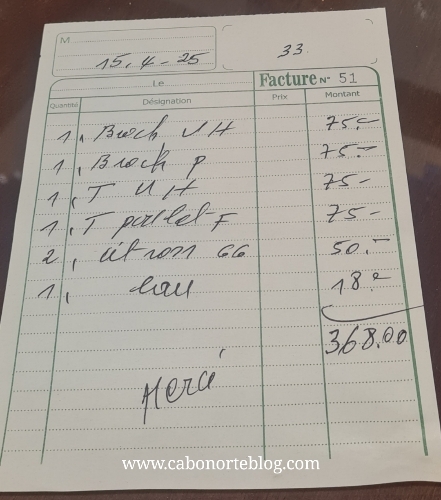 M
15.4-25
33.
Le
Facture N° 51
Quantité Désignation Prix Montant
1, Broch VH 75.-
1, Broch P 75.-
1, T VH 75-
1, T poulet F 75-
2, citron GG 50.-
1, eau 18.-
368.00
Merci
www.cabonorteblog.com